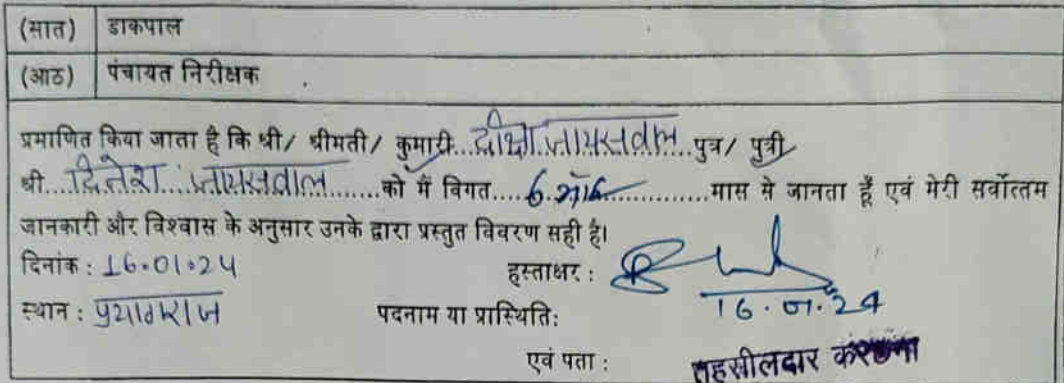 (सात) डाकपाल
(आठ) पंचायत निरीक्षक
प्रमाणित किया जाता है कि श्री/ श्रीमती/ कुमारी...दीक्षा जायसवाल...पुत्र/ पुत्री
श्री...दिनेश...जायसवाल...........को मैं विगत.....6 माह..................मास से जानता हूँ एवं मेरी सर्वोत्तम
जानकारी और विश्वास के अनुसार उनके द्वारा प्रस्तुत विवरण सही है।
दिनांक : 16.01.24 हस्ताक्षर :
स्थान : प्रयागराज पदनाम या प्रास्थिति: 16.01.24
एवं पता : तहसीलदार करछना